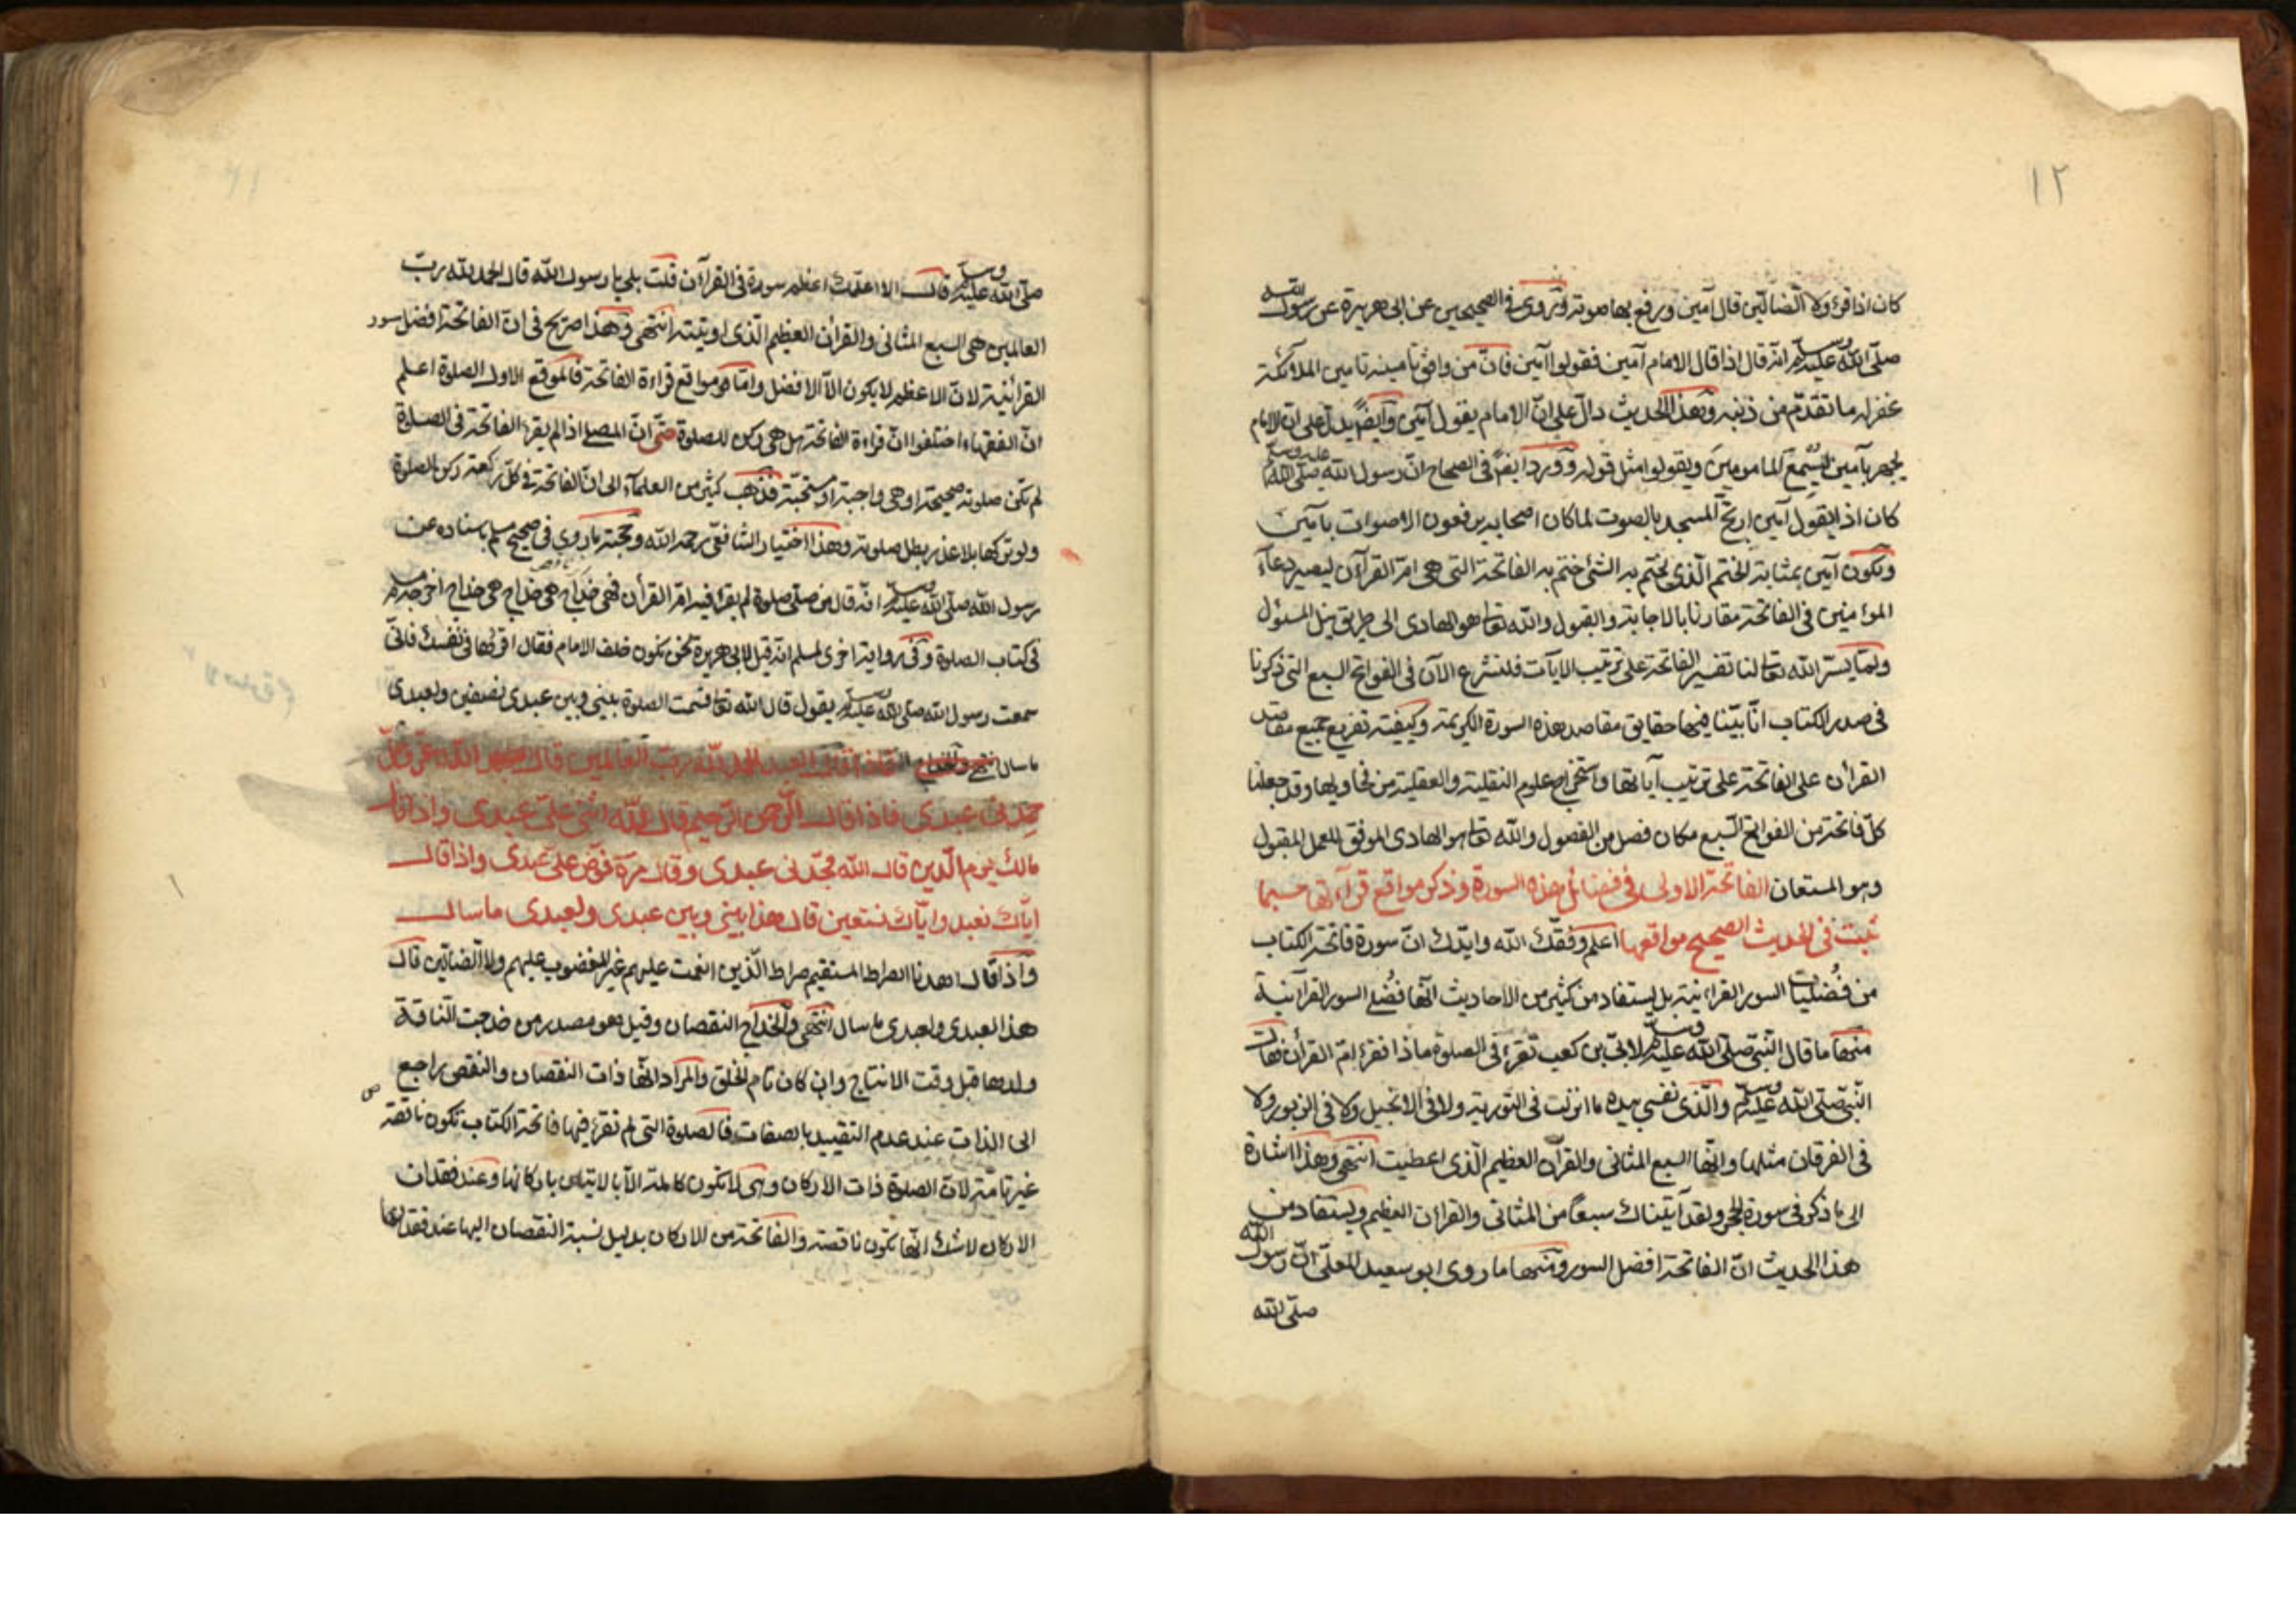 ١٢
كان اذا قرئ ولا الضالين قال آمين ويرفع بها صوته وَرَوى في الصحيحين عن ابى هريرة عن رسول الله
صلّى الله عليه وسلم انه قال اذا قال الامام آمين فقولوا آمين فانّ من وافق تأمينه تامين الملائكة
غفر له ما تقدّم من ذنبه وهذا الحديث دالّ على انّ الامام يقول آمين وايضًا يدلّ على ان الامام
يجهر بآمين ليسمع المامومين ويقولوا مثل قوله وورد ايضًا في الصحاح انّ رسول الله صلى الله عليه وسلم
كان اذ ايقول آمين ارتجّ المسجد بالصوت لما كان اصحابه يرفعون الاصوات بآمين
ويكون آمين بمثابة الختم الّذى يختم به الشئ ختم به الفاتحة التى هى امّ القرآن ليصير دعاء
المؤمنين في الفاتحة مقارنا بالاجابة والقبول والله تعا هو الهادى الى طريق نيل المسئول
ولمّا يسّر الله تعا لنا تفسير الفاتحة على ترتيب الايآت فلنشرع الآن فى الفواتح السبع التى ذكرنا
فى صدر الكتاب انّا بيّنا فيها حقايق مقاصد هذه السورة الكريمة وكيفية تفريع جميع مقاصد
القرآن على الفاتحة على ترتيب آياتها واستخراج علوم النقلية والعقلية من فحاويها وقد جعلنا
كلّ فاتحة من الفواتح السّبع مكان فصل من الفصول والله تعا هو الهادى الموفق للعمل المقبول
وهو المستعان الفاتحة الاولى فى فضائل هذه السورة وذكر مواقع قرآءتها حسبما
ثبت فى الحديث الصحيح مواقعها اعلم وفقك الله وايّدك انّ سورة فاتحة الكتاب
من فضليات السور القرآنية بل يستفاد من كثير من الاحاديث انّها فُضلى السور القرآنية
منها ما قال النّبى صلى الله عليه وسلم لابىّ بن كعب تقرء فى الصلوة ماذا فقرء امّ القرآن فقال
النّبى صلّى الله عليه وسلم والّذى نفسى بيده ما انزلت فى التورية ولا فى الانجيل ولا فى الزبور ولا
فى الفرقان مثلها وانّها السبع المثانى والقرآن العظيم الّذى اعطيت انتهى وهذا اشارة
الى ما ذكر فى سورة الحجر ولقد آيتناك سبعًا من المثانى والقرآن العظيم ويستفاد من
هذا الحديث انّ الفاتحة افضل السور ومنها ما روى ابو سعيد المعلّى انّ رسول الله
صلّى الله
صلّى الله عليه وسلم قال الا اعلّمك اعظم سورة فى القرآن قلت بلى يا رسول الله قال الحمد لله ربّ
العالمين هى السبع المثانى والقرآن العظيم الّذى اوتيته انتهى وهذا صريح فى انّ الفاتحة افضل سور
القرآنية لانّ الاعظم لا يكون الّا الافضل وامّا مواقع قراءة الفاتحة فالموقع الاول الصلوة اعلم
انّ الفقهاء اختلفوا انّ قراءة الفاتحة هل هى ركن للصلوة حتّى انّ المصلى اذا لم يقرء الفاتحة فى الصلوة
لم تكن صلوته صحيحة او هى واجبة او مستحبّة فذهب كثير من العلمآء الى انّ الفاتحة فى كلّ ركعة ركن الصلوة
ولو تركها بلا عذر بطل صلوته وهذا اختيار الشافعى رحمه الله وحجته ما روى فى صحيح مسلم باسناده عن
رسول الله صلّى الله عليه وسلم انّه قال من صلّى صلوة لم يقرء فيه امّ القرآن فهى خداج هى خداج هى خداج اخرجه مسلم
فى كتاب الصلوة وفى رواية اخرى لمسلم انه قيل لابى هريرة نحن نكون خلف الامام فقال اقرئها فى نفسك فانّى
سمعت رسول الله صلى الله عليه وسلم يقول قال الله تعا قسمت الصلوة بينى وبين عبدى نصفين ولعبدى
ما سال فاذا قال العبد الحمد للّه ربّ العالمين قال الله عزّ وجلّ
حمدنى عبدى فاذا قال الرّحمن الرّحيم قال اللّه اثنى علىّ عبدى واذا قال
مالك يوم الّدين قال الله مجّدنى عبدى وقال مرّة فوّض علىّ عبدى واذا قال
ايّاك نعبد وايّاك نستعين قال هذا بينى وبين عبدى ولعبدى ما سال
واذا قال اهدنا الصراط المستقيم صراط الّذين انعمت عليهم غير المغضوب عليهم ولا الضالّين قال
هذا لعبدى ولعبدى ما سال انتهى والخداج النقصان وقيل هو مصدر من خدجت النّاقة
ولدها قبل وقت الانتاج وان كان تام الخلق والمراد انّها ذات النقصان والنقص راجع
الى الذات عند عدم التقييد بالصفات فالصلوة التى لم تقرء فيها فاتحة الكتاب تكون ناقصة
غير تامّة لانّ الصلوة ذات الاركان وهى لا تكون كاملة الّا بالاتيان باركانها وعند فقدان
الاركان لا شك انّها تكون ناقصة والفاتحة من الاركان بدليل نسبة النقصان اليها عند فقدانها